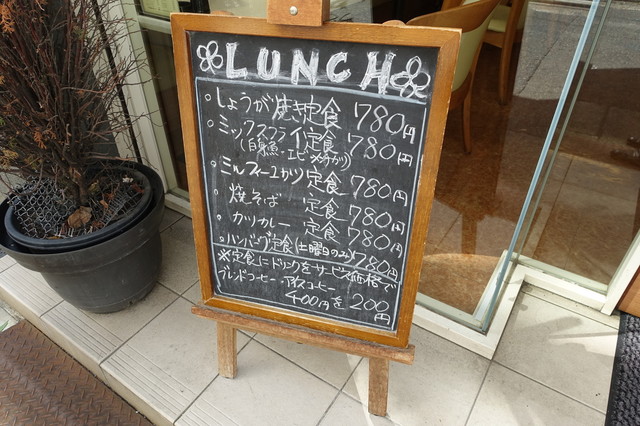 LUNCH
・しょうが焼き定食 780円
・ミックスフライ定食 780円
(白身魚・エビ・メンチカツ)
・ミルフィーユカツ定食 780円
・焼そば 定食 780円
・カツカレー 定食 780円
・ハンバーグ定食(土曜日のみ)780円
※定食にドリンクをサービス価格で
ブレンドコーヒー・アイスコーヒー
400円を200円